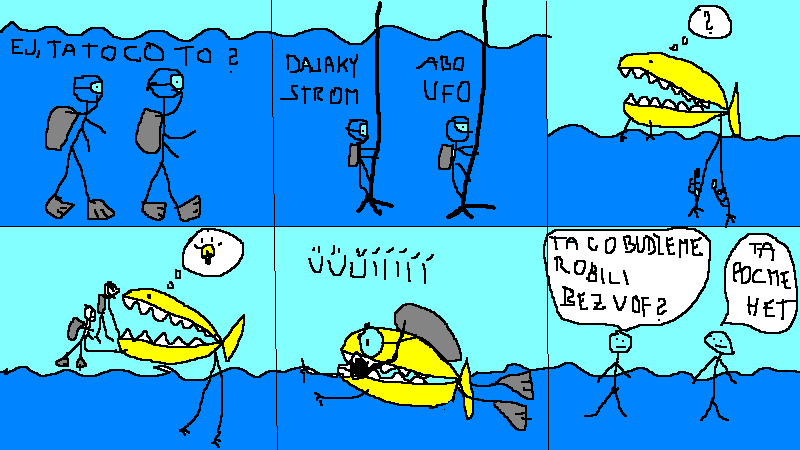 EJ, TA TO CO TO ?
DAJAKY
STROM
ABO
UFO
?
ÚÚÚÍÍÍÍÍ
TA CO BUDZEME
ROBILI
BEZ VOF?
TA
POCME
HET